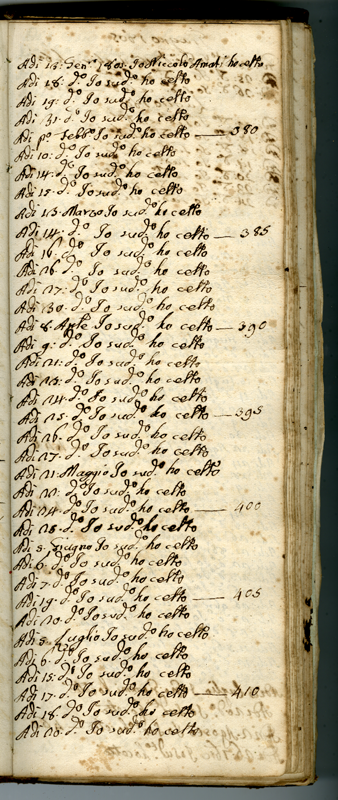 Adi 14: Gen.º 1801. Io Niccolò Amati ho celto
Adi 18: d.º Io sud.º ho celto
Adi 19: d.º Io sud.º ho celto
Adi 31: d.º Io sud.º ho celto
Adi p.º Febb.º Io sud.º ho celto — 380
Adi 10: d.º Io sud.º ho celto
Adi 14: d.º Io sud.º ho celto
Adi 15: d.º Io sud.º ho celto
Adi 13 Marzo Io sud.º ho celto
Adi 14: d.º Io sud.º ho celto — 385
Adi 16: d.º Io sud.º ho celto
Adi 26: d.º Io sud.º ho celto
Adi 27: d.º Io sud.º ho celto
Adi 30: d.º Io sud.º ho celto
Adi 8: Aple Io sud.º ho celto — 390
Adi 9: d.º Io sud.º ho celto
Adi 21: d.º Io sud.º ho celto
Adi 23: d.º Io sud.º ho celto
Adi 24: d.º Io sud.º ho celto
Adi 25: d.º Io sud.º ho celto — 395
Adi 26: d.º Io sud.º ho celto
Adi 27: d.º Io sud.º ho celto
Adi 21: Maggio Io sud.º ho celto
Adi 22: d.º Io sud.º ho celto
Adi 24: d.º Io sud.º ho celto — 400
Adi 28: d.º Io sud.º ho celto
Adi 5: Giugno Io sud.º ho celto
Adi 6: d.º Io sud.º ho celto
Adi 7: d.º Io sud.º ho celto
Adi 19: d.º Io sud.º ho celto — 405
Adi 20: d.º Io sud.º ho celto
Adi 5: Luglio Io sud.º ho celto
Adi 6: d.º Io sud.º ho celto
Adi 15: d.º Io sud.º ho celto
Adi 17: d.º Io sud.º ho celto — 410
Adi 18: d.º Io sud.º ho celto
Adi 20: d.º Io sud.º ho celto